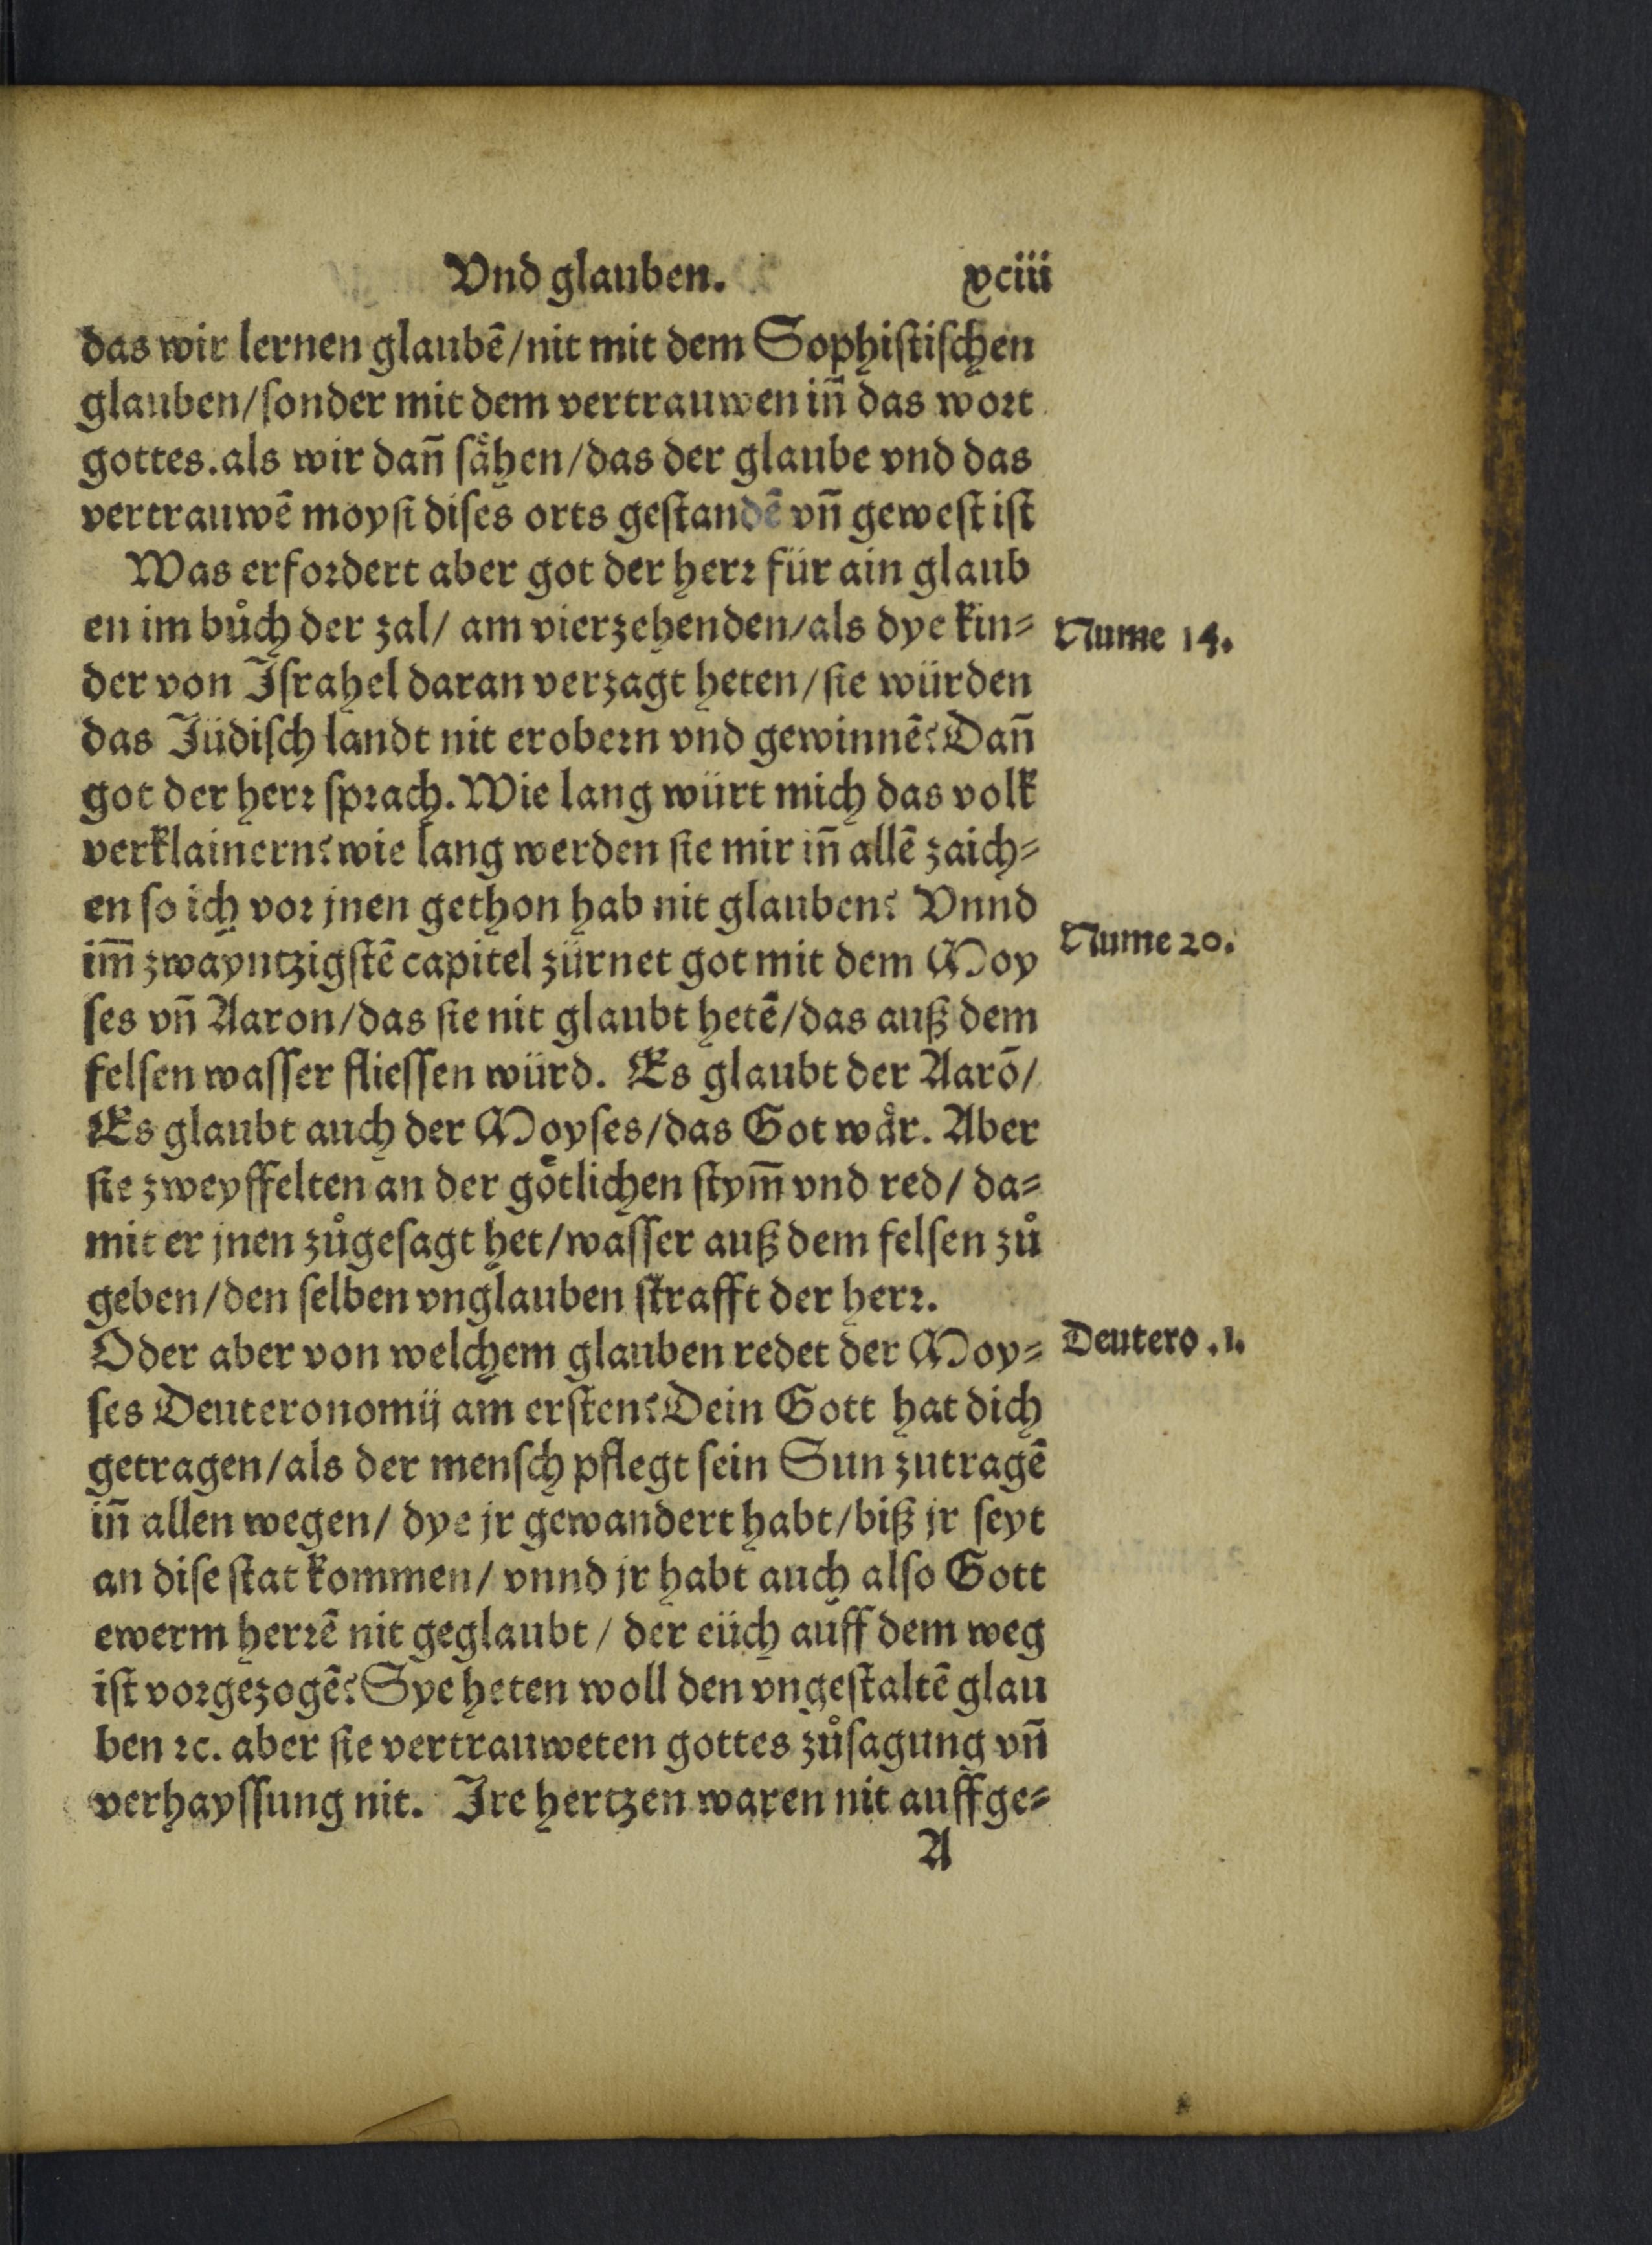 Vnd glauben. xciii
das wir lernen glaubē/nit mit dem Sophiſtiſchen
glauben/ſonder mit dem vertrauwen iñ das woꝛt
gottes.als wir dañ ſaͤhen/das der glaube vnd das
vertrauwē moyſi diſes orts geſtandē vñ geweſt iſt
Was erfoꝛdert aber got der herꝛ für ain glaub
en im bůch der zal/ am vierzehenden/als dye kin⸗
Nume 14.
der von Iſrahel daran verzagt heten/ſie würden
das Jüdiſch landt nit erobeꝛn vnd gewinnē? Dañ
got der herꝛ ſpꝛach. Wie lang würt mich das volk
verklainern? wie lang werden ſie mir iñ allē zaich⸗
en ſo ich voꝛ jnen gethon hab nit glauben? Vnnd
im̄ zwayntzigſtē capitel zürnet got mit dem Moy
Nume 20.
ſes vñ Aaron/das ſie nit glaubt hetē/das auß dem
felſen waſſer flieſſen würd. Es glaubt der Aarō/
Es glaubt auch der Moyſes/das Got waͤr. Aber
ſie zweyffelten an der goͤtlichen ſtym̄ vnd red/ da⸗
mit er jnen zůgeſagt het/waſſer auß dem felſen zů
geben/den ſelben vnglauben ſtrafft der herꝛ.
Oder aber von welchem glauben redet der Moy⸗
Deutero .1.
ſes Deuteronomij am erſten? Dein Gott hat dich
getragen/als der menſch pflegt ſein Sun zutragē
iñ allen wegen/ dye jr gewandert habt/biß jr ſeyt
an diſe ſtat kommen/ vnnd jr habt auch alſo Gott
ewerm herꝛē nit geglaubt/ der eüch auff dem weg
iſt voꝛgezogē? Sye heten woll den vngeſtaltē glau
ben ꝛc. aber ſie vertrauweten gottes zůſagung vñ
verhayſſung nit. Ire hertzen waren nit auffge⸗
A